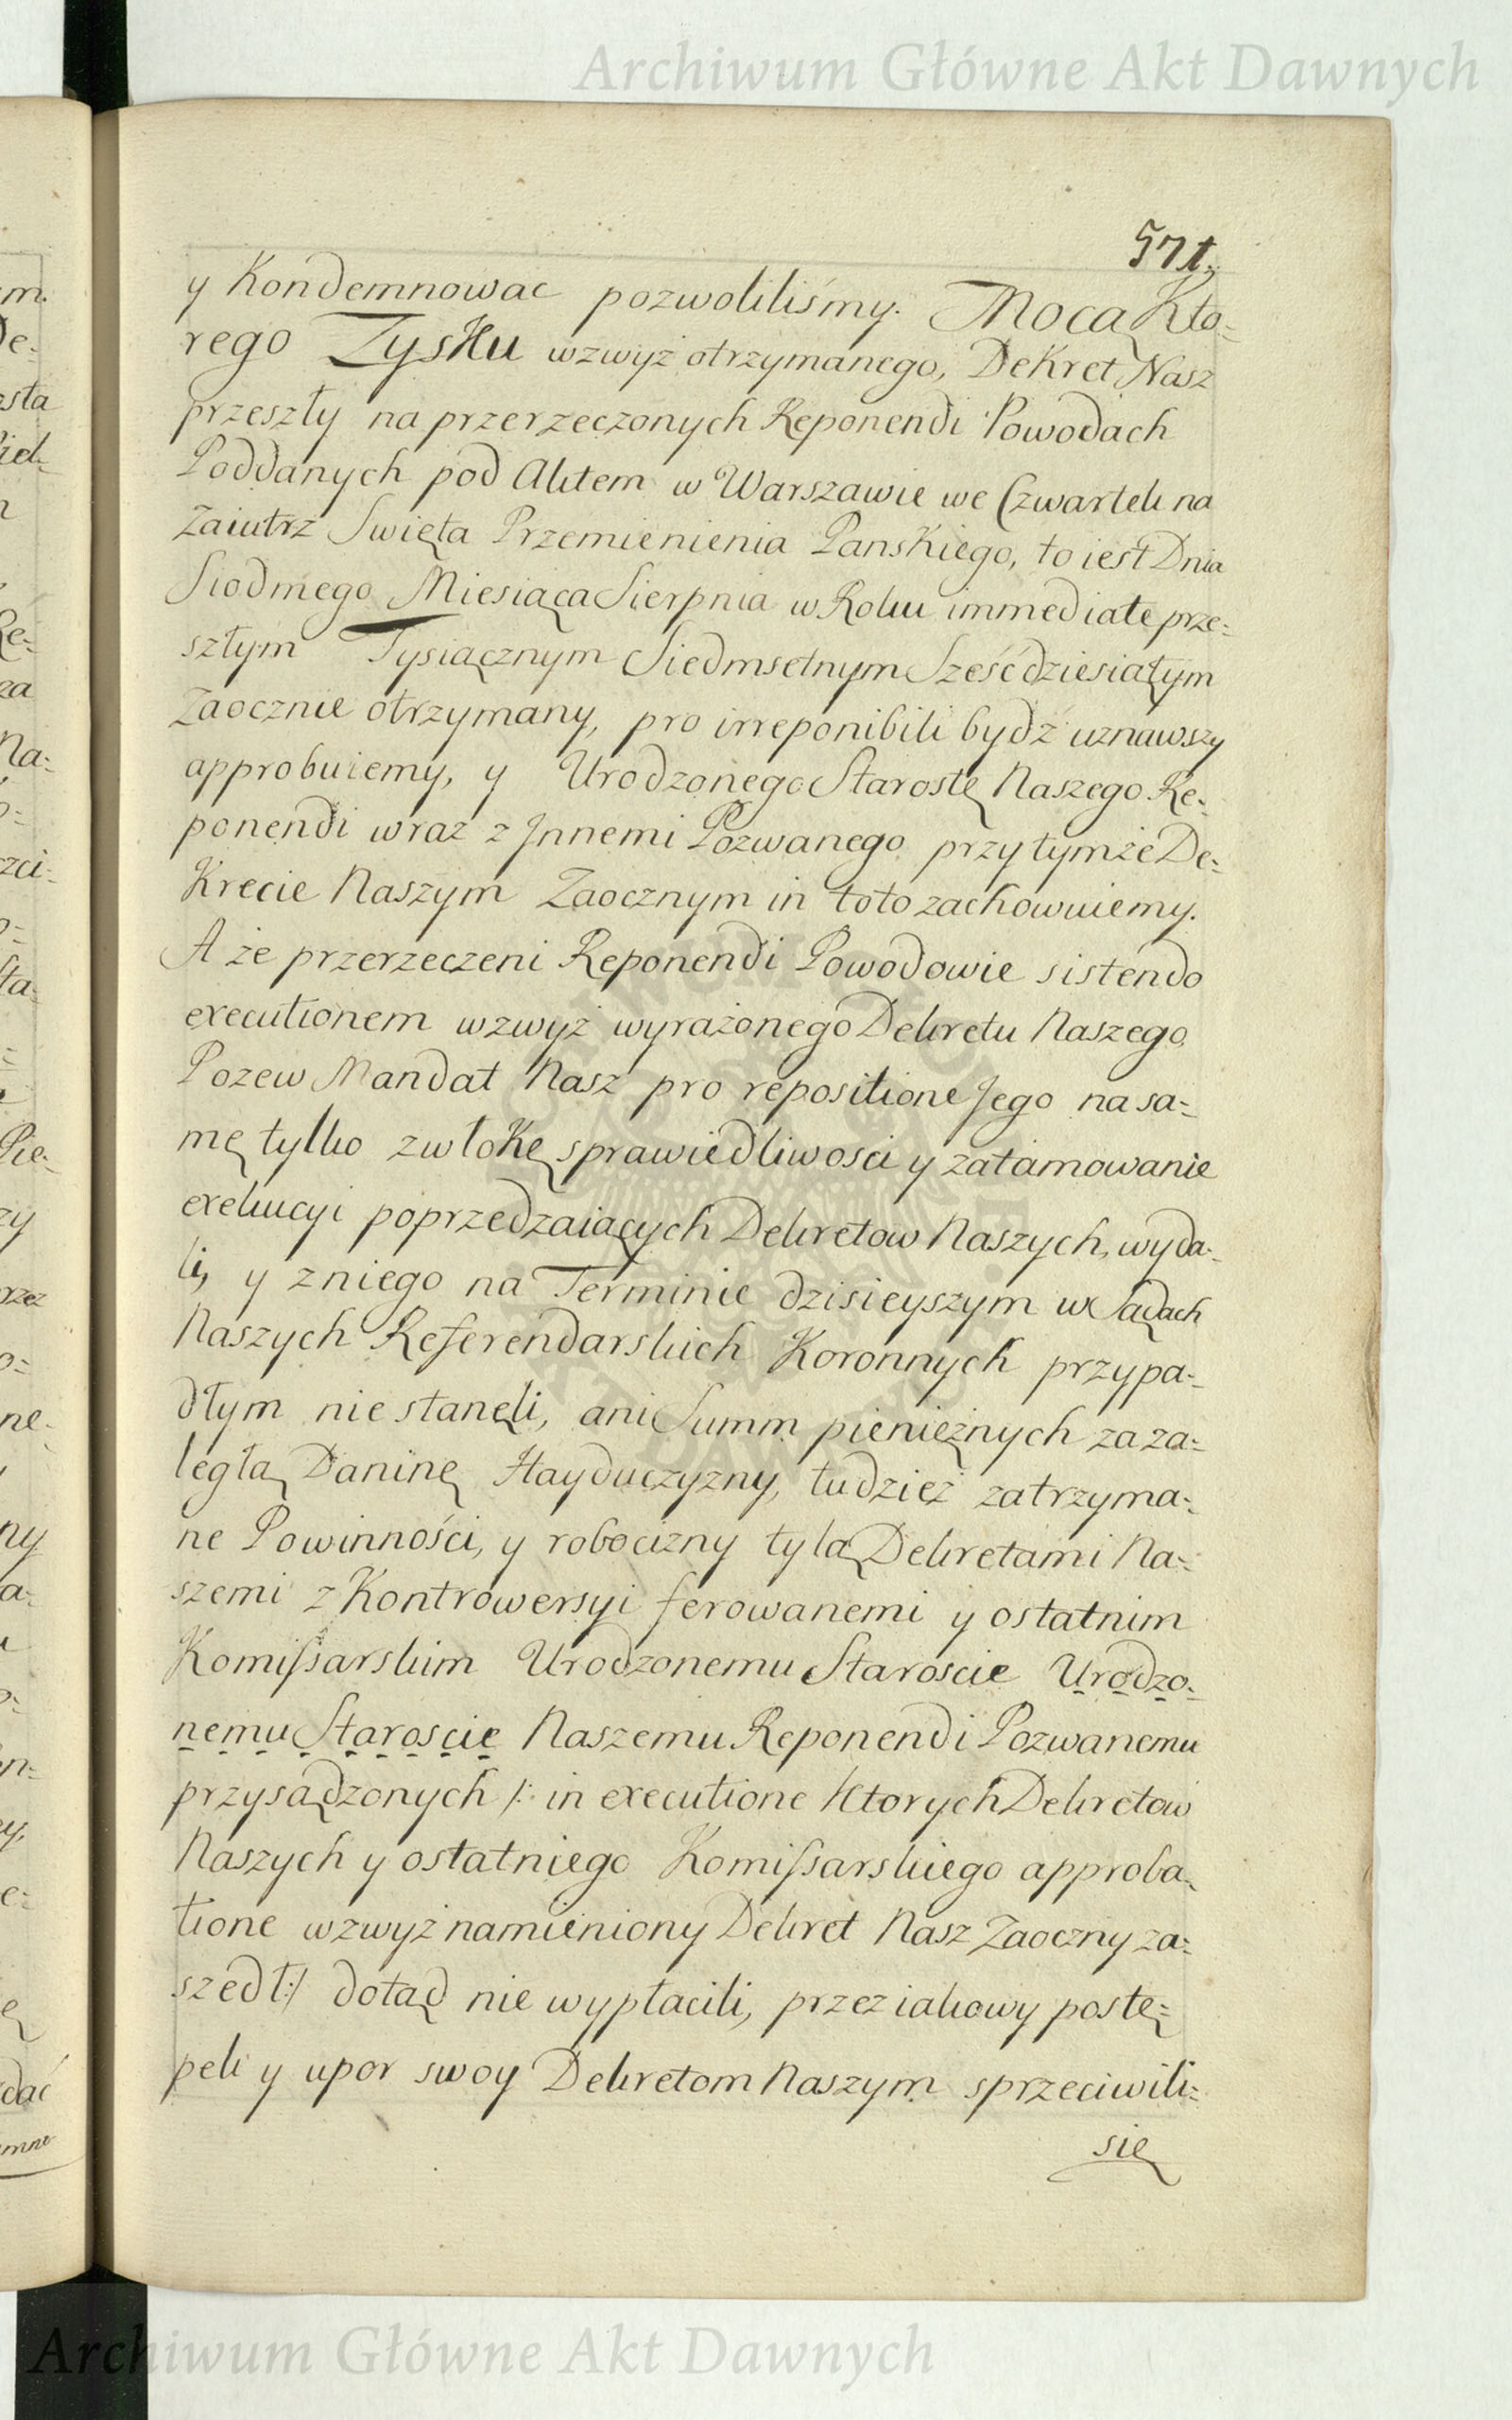 Archiwum Główne Akt Dawnych
571.
y Kondemnowac pozwoliliśmy. Mocą Kto=
rego Zysku wzwyż otrzymanego, Dekret Nasz
przeszły na przerzeczonych Reponendi Powodach
Poddanych pod Aktem w Warszawie we Czwartek na
Zaiutrz Swięta Przemienienia Panskiego, to iest Dnia
Siodmego Miesiąca Sierpnia w Roku immediate prze=
szłym Tysiącznym Siedmsetnym Sześćdziesiątym
Zaocznie otrzymany, pro irreponibili bydź uznawszy
approbuiemy, y Urodzonego Starostę Naszego Re=
ponendi wraz z Jnnemi Pozwanego przy tymże De=
Krecie Naszym Zaocznym in toto zachowuiemy.
A że przerzeczeni Reponendi Powodowie sistendo
executionem wzwyż wyrażonego Dekretu Naszego,
Pozew Mandat Nasz pro repositione Jego na sa=
mę tylko zwłokę sprawiedliwosci y zatamowanie
exekucyi poprzedzaiących Dekretow Naszych, wyda=
li, y z niego na Terminie dzisieyszym w Sądach
Naszych Referendarskich Koronnych przypa=
dłym nie stanęli, ani Summ pieniężnych za za=
ległą Daninę Hayduczyzny, tudzież zatrzyma=
ne Powinności, y robocizny tylą Dekretami Na=
szemi z Kontrowersyi ferowanemi y ostatnim
Komissarskim Urodzonemu Staroscie Urodzo=
nemu Staroscie Naszemu Reponendi Pozwanemu
przysądzonych /: in executione Ktorych Dekretow
Naszych y ostatniego Komissarskiego approba=
tione wzwyż namieniony Dekret Nasz Zaoczny za=
szedł:/ dotąd nie wypłacili, przez iakowy postę=
pek y upor swoy Dekretom Naszym sprzeciwili=
się
Archiwum Główne Akt Dawnych